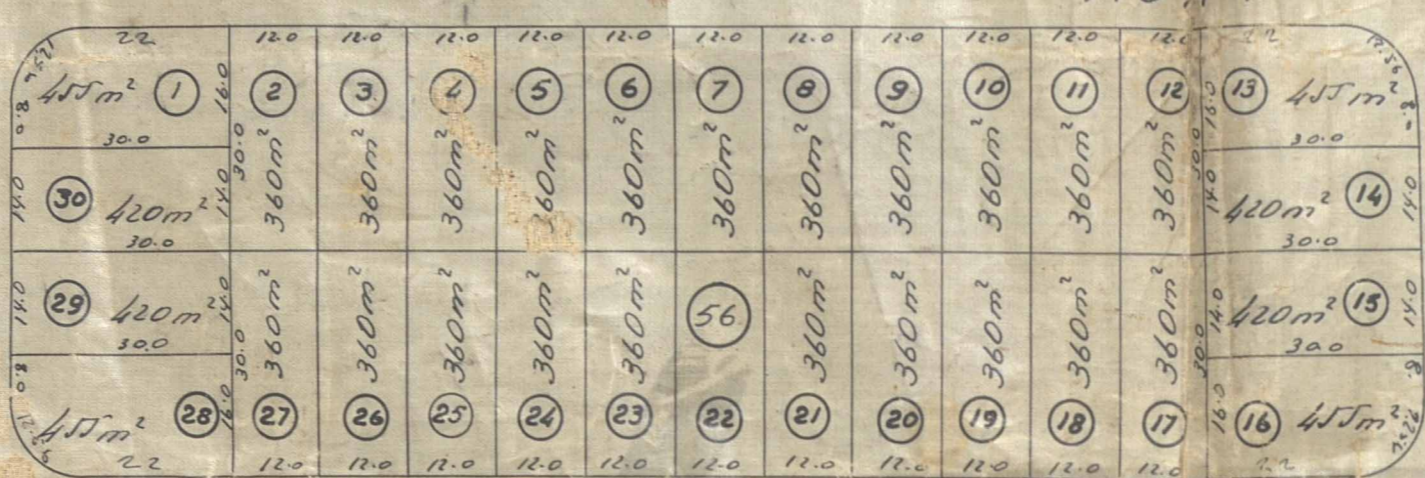 22 12.0 12.0 12.0 12.0 12.0 12.0 12.0 12.0 12.0 12.0 12.0 22
12.56 12.56
455m² 1 16.0 2 3 4 5 6 7 8 9 10 11 12 16.0 13 455m²
8.0 8.0
30.0 30.0 30.0 30.0
360m² 360m² 360m² 360m² 360m² 360m² 360m² 360m² 360m² 360m² 360m²
14.0 30 420m² 14.0 14.0 420m² 14 14.0
30.0 30.0
14.0 29 420m² 14.0 56 14.0 420m² 15 14.0
30.0 30.0
360m² 360m² 360m² 360m² 360m² 360m² 360m² 360m² 360m² 360m²
8.0 30.0 30.0 8.
455m² 28 16.0 27 26 25 24 23 22 21 20 19 18 17 16.0 16 455m²
22 12.0 12.0 12.0 12.0 12.0 12.0 12.0 12.0 12.0 12.0 12.0 22